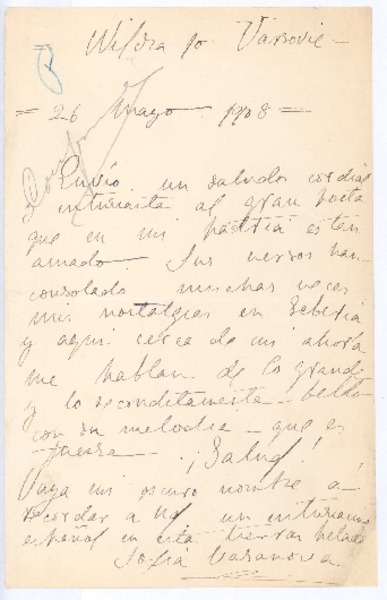 Wildza 10. Varsovie –
= 26 Mayo. 1908 =
Envío un saludos cordial
entusiasta al gran poeta
que en mi patria es tan
amado. Sus versos han
consolado muchas veces
mis nostalgias en Seberia
y aqui cerca de mi ahora
me hablan de lo grande
y lo reconditamente bello
con su melodia – que es
fuerza. ¡Salud!
Vaya mi oscuro nombre a
recordar a Ud un entusiasmo
español en esta tierra helada
Sofia Casanova